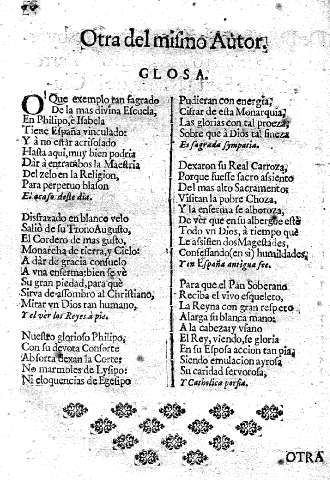 Otra del miſmo Autor.
GLOSA.
O Que exemplo tan ſagrado
De la mas divina Eſcuela,
En Philipo, è Isabela
Tiene Eſpaña vinculado!
Y à no eſtár acriſolado
Haſta aqui, muy bien podria
Dàr à entrambos la Maeſtria
Del zelo en la Religion,
Para perpetuo blaſon
El acaſo deſte dia.
Disfrazado en blanco velo
Saliò de ſu Trono Auguſto,
El Cordero de mas guſto,
Monarcha de tierra, y Cielo:
A dàr de gracia conſuelo
A vna enferma; bien ſe vè
Su gran piedad, para què
Sirva de aſſombro al Chriſtiano,
Mirar vn Dios tan humano,
Y el ver los Reyes à pie.
Nueſtro glorioſo Philipo,
Con ſu devota Conſorte
Abſorta dexan la Corte:
No marmoles de Lyſipo:
Ni eloquencias de Egeſipo
Pudieran con energia,
Cifrar de eſta Monarquia,
Las glorias con tal proeza,
Sobre que à Dios tal fineza
Es ſagrada ſympatia.
Dexaron ſu Real Carroza,
Porque fueſſe ſacro aſsiento
Del mas alto Sacramento:
Viſitan la pobre Choza,
Y la enferma ſe alboroza,
De vèr que en ſu albergue eſtè
Todo vn Dios, à tiempo què
Le aſsiſten dos Mageſtades,
Confeſſando (en si) humildades,
Y en Eſpaña antigua fee.
Para que el Pan Soberano
Reciba el vivo eſqueleto,
La Reyna con gran reſpeto
Alarga ſu blanca mano:
A la cabeza; y vfano
El Rey, viendo, ſe gloria
En ſu Eſpoſa accion tan pia,
Siendo emulacion ayroſa
Su caridad fervoroſa,
Y Catholica porfia.
OTRA